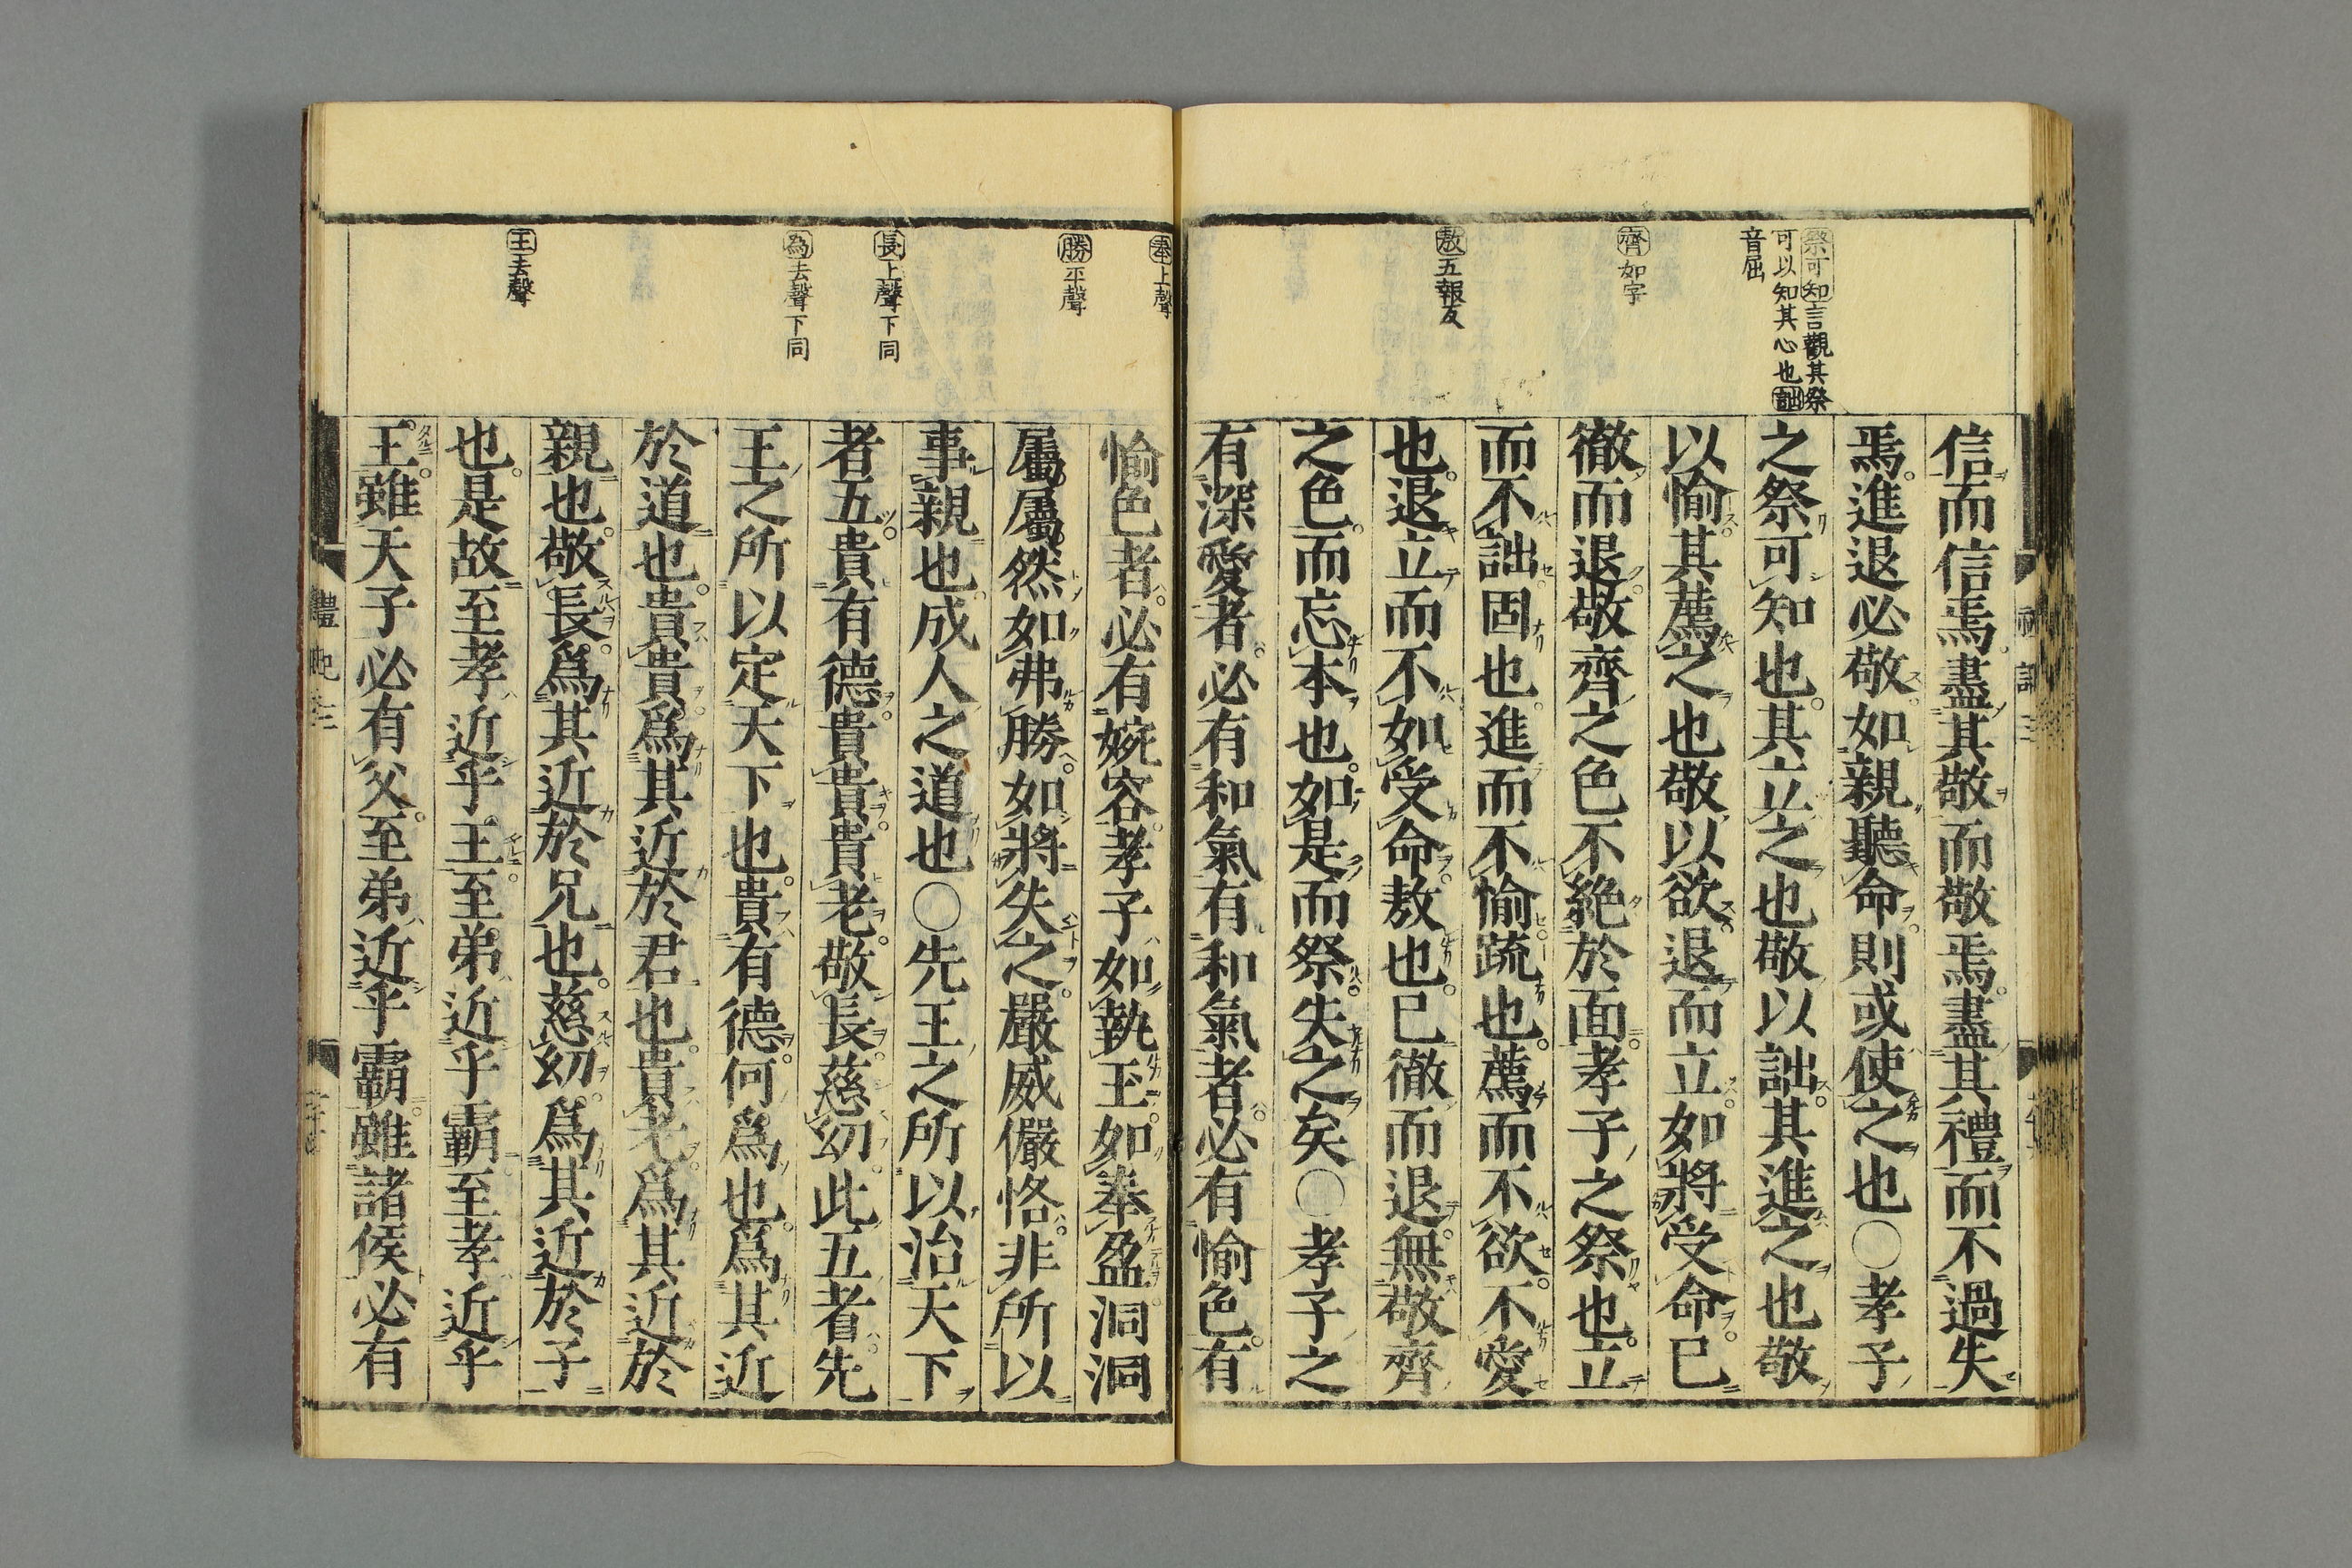 祭可知言觀其祭
可以知其心也詘
音屈
齊如字
敖五報反
信而信焉盡其敬而敬焉盡其禮而不過失
焉進退必敬如親聽命則或使之也○孝子
之祭可知也其立之也敬以詘其進之也敬
以愉其薦之也敬以欲退而立如將受命已
徹而退敬齊之色不絶於面孝子之祭也立
而不詘固也進而不愉疏也薦而不欲不愛
也退立而不如受命敖也已徹而退無敬齊
之色而忘本也如是而祭失之矣○孝子之
有深愛者必有和氣有和氣者必有愉色有
奉上聲
勝平聲
長上聲下同
為去聲下同
王去聲
愉色者必有婉容孝子如執玉如奉盈洞洞
屬屬然如弗勝如將失之嚴威儼恪非所以
事親也成人之道也○先王之所以治天下
者五貴有德貴貴貴老敬長慈幼此五者先
王之所以定天下也貴有德何爲也爲其近
於道也貴貴爲其近於君也貴老爲其近於
親也敬長爲其近於兄也慈幼爲其近於子
也是故至孝近乎王至弟近乎霸至孝近乎
王雖天子必有父至弟近乎霸雖諸侯必有